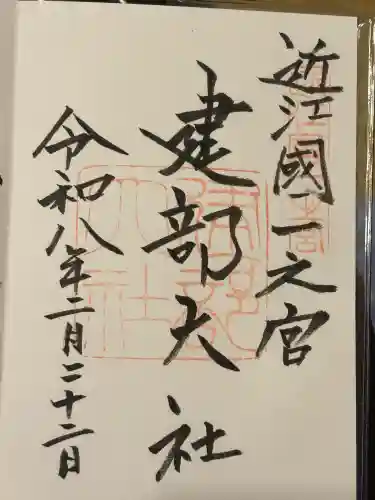 近江國一之宮
建部大社
令和八年二月二十二日
建部大社